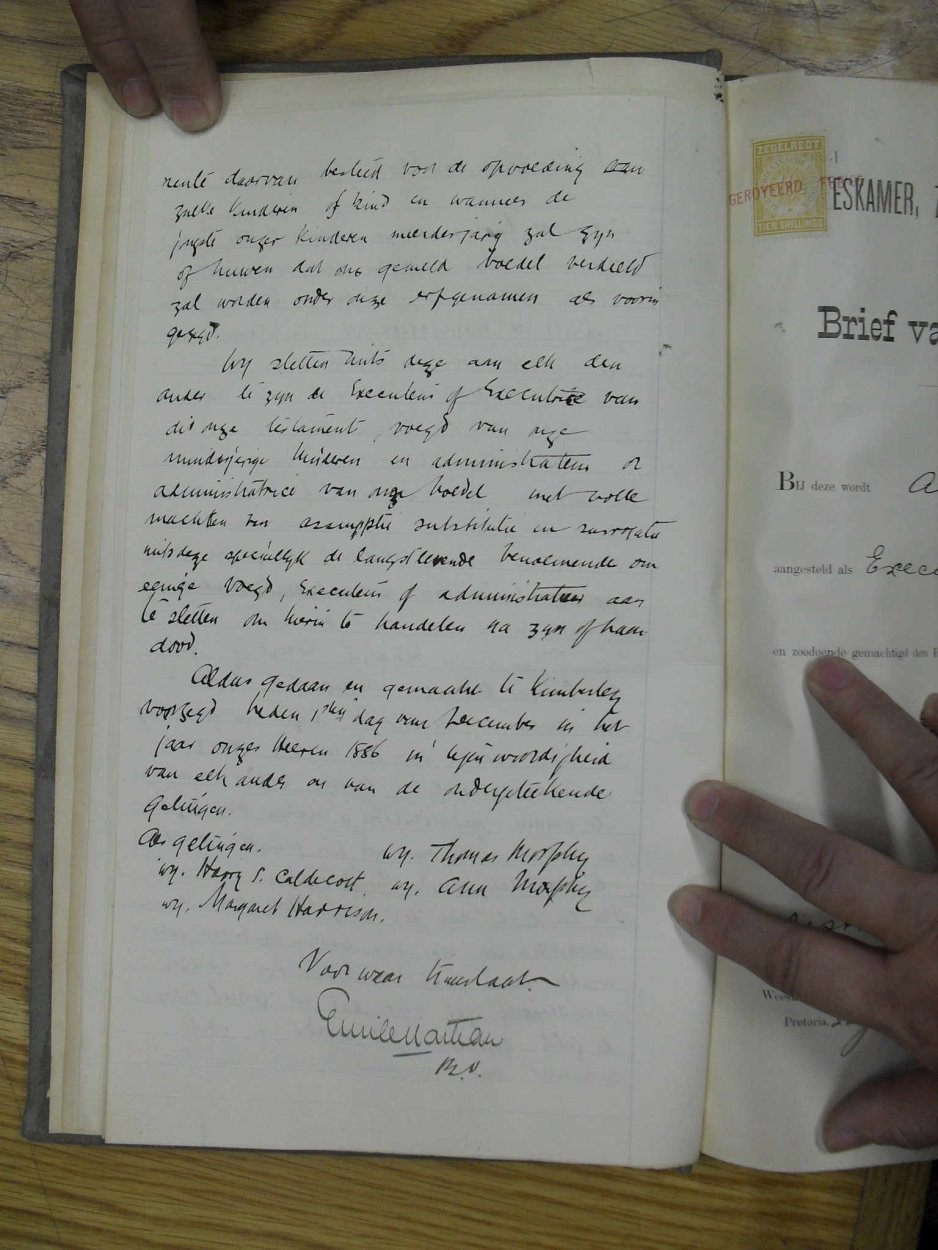 rente daarvan besteed voor de opvoeding van
zulke kinderen of kind en wanneer de
jongste onzer kinderen meerderjarig zal zyn
of huwen dat ons gemeld boedel verdeeld
zal worden onder onze erfgenamen als voorin
gezegd.
Wy stellen mits deze aan elk den
ander te zyn de Executeur of Executrice van
dit onze testament, voogd van onze
minderjarige kinderen en administrateur or
administratrice van onze boedel met volle
machten van assumptie substitutie en surrogatie
mitsdeze speciallyk de langstlevende benoemende om
eenige voogd, Executeur of administrateur aan
te stellen om hierin te handelen na zyn of haar
dood.
Aldus gedaan en gemaakt te Kimberley
voorzegd heden dag van December in het
jaar onzes Heeren 1886 in tegenwoordigheid
van elkander en van de ondergeteekende
getuigen.
As getuigen. wg. Thomas Morphy
wg. Harry S. Caldecott. wg. Ann Morphy
wg. Margaret Harrison.
Voor waar translaat.
Emile Nathan
ZEGELREGT
TIEN SHILLINGS
GEROYEERD
ESKAMER,
Brief va
Bij deze wordt
aangestéld als Exec
en zoodoende gemachtigd den
Wees
Pretoria,